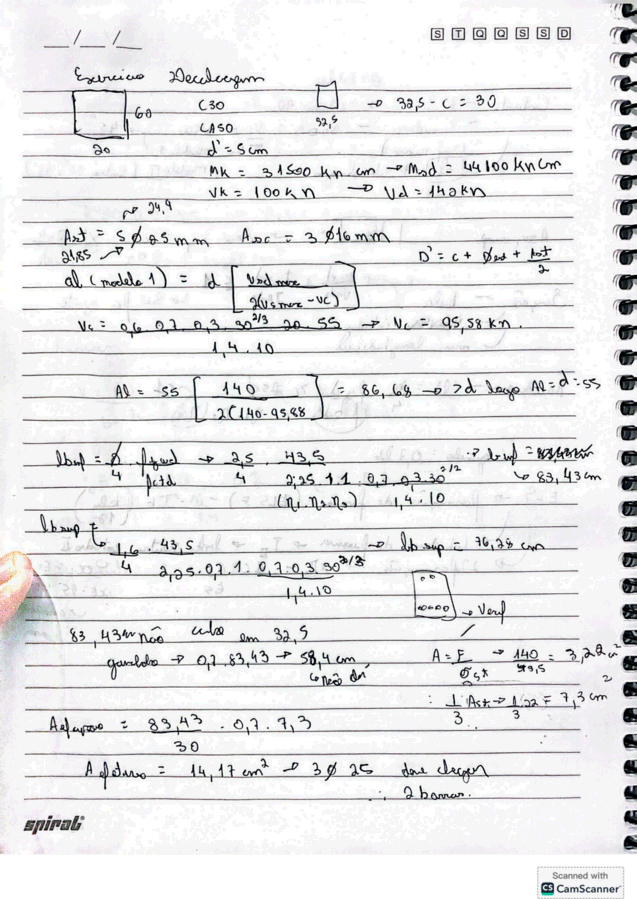 __/__/__ S T Q Q S S D
Exercício Decalagem
60 C30 → 32,5 - c = 30
20 CA50 32,5
d' = 5cm
Mk = 31500 kn cm → Msd = 44100 kncm
Vk = 100 kn → Vd = 140kn
24,9
Ast = 5 Ø 25mm Asc = 3 Ø16mm
21,85
D' = c + Øest +
2
al (modelo 1) = d [ Vsd max
2(Vs max - Vc) ]
Vc = 0,6. 0,7. 0,3. 30^2/3. 20. 55 → Vc = 95,58 kn.
1,4. 10
Al = 55 [ 140 ] = 86,68 → >d logo Al = d = 55
2(140-95,88
lbinf = Ø . fywd → 2,5 . 43,5
4 fctd 4 2,25. 1. 1. 0,7. 0,3. 30^2/2
(η1. η2. η3) 1,4. 10
↳ 83,43 cm
lb sup =
↳ 1,6 . 43,5 → lb sup = 76,28 cm
4 2,25. 0,7. 1. 0,7. 0,3. 30^2/3
1,4. 10
→ Verif
83,43cm não cabe em 32,5
gancho → 0,7. 83,43 → 58,4 cm
↳ não dá
A = F → 140 = 3,22 cm²
σst 43,5
: 1 Ast → 1.22 = 7,3 cm²
3 3
A apoio = 83,43 . 0,7. 7,3
30
A efetivo = 14,17 cm² → 3 Ø 25 deve chegar
∴ 2 barras.
spiral
Scanned with
CS CamScanner